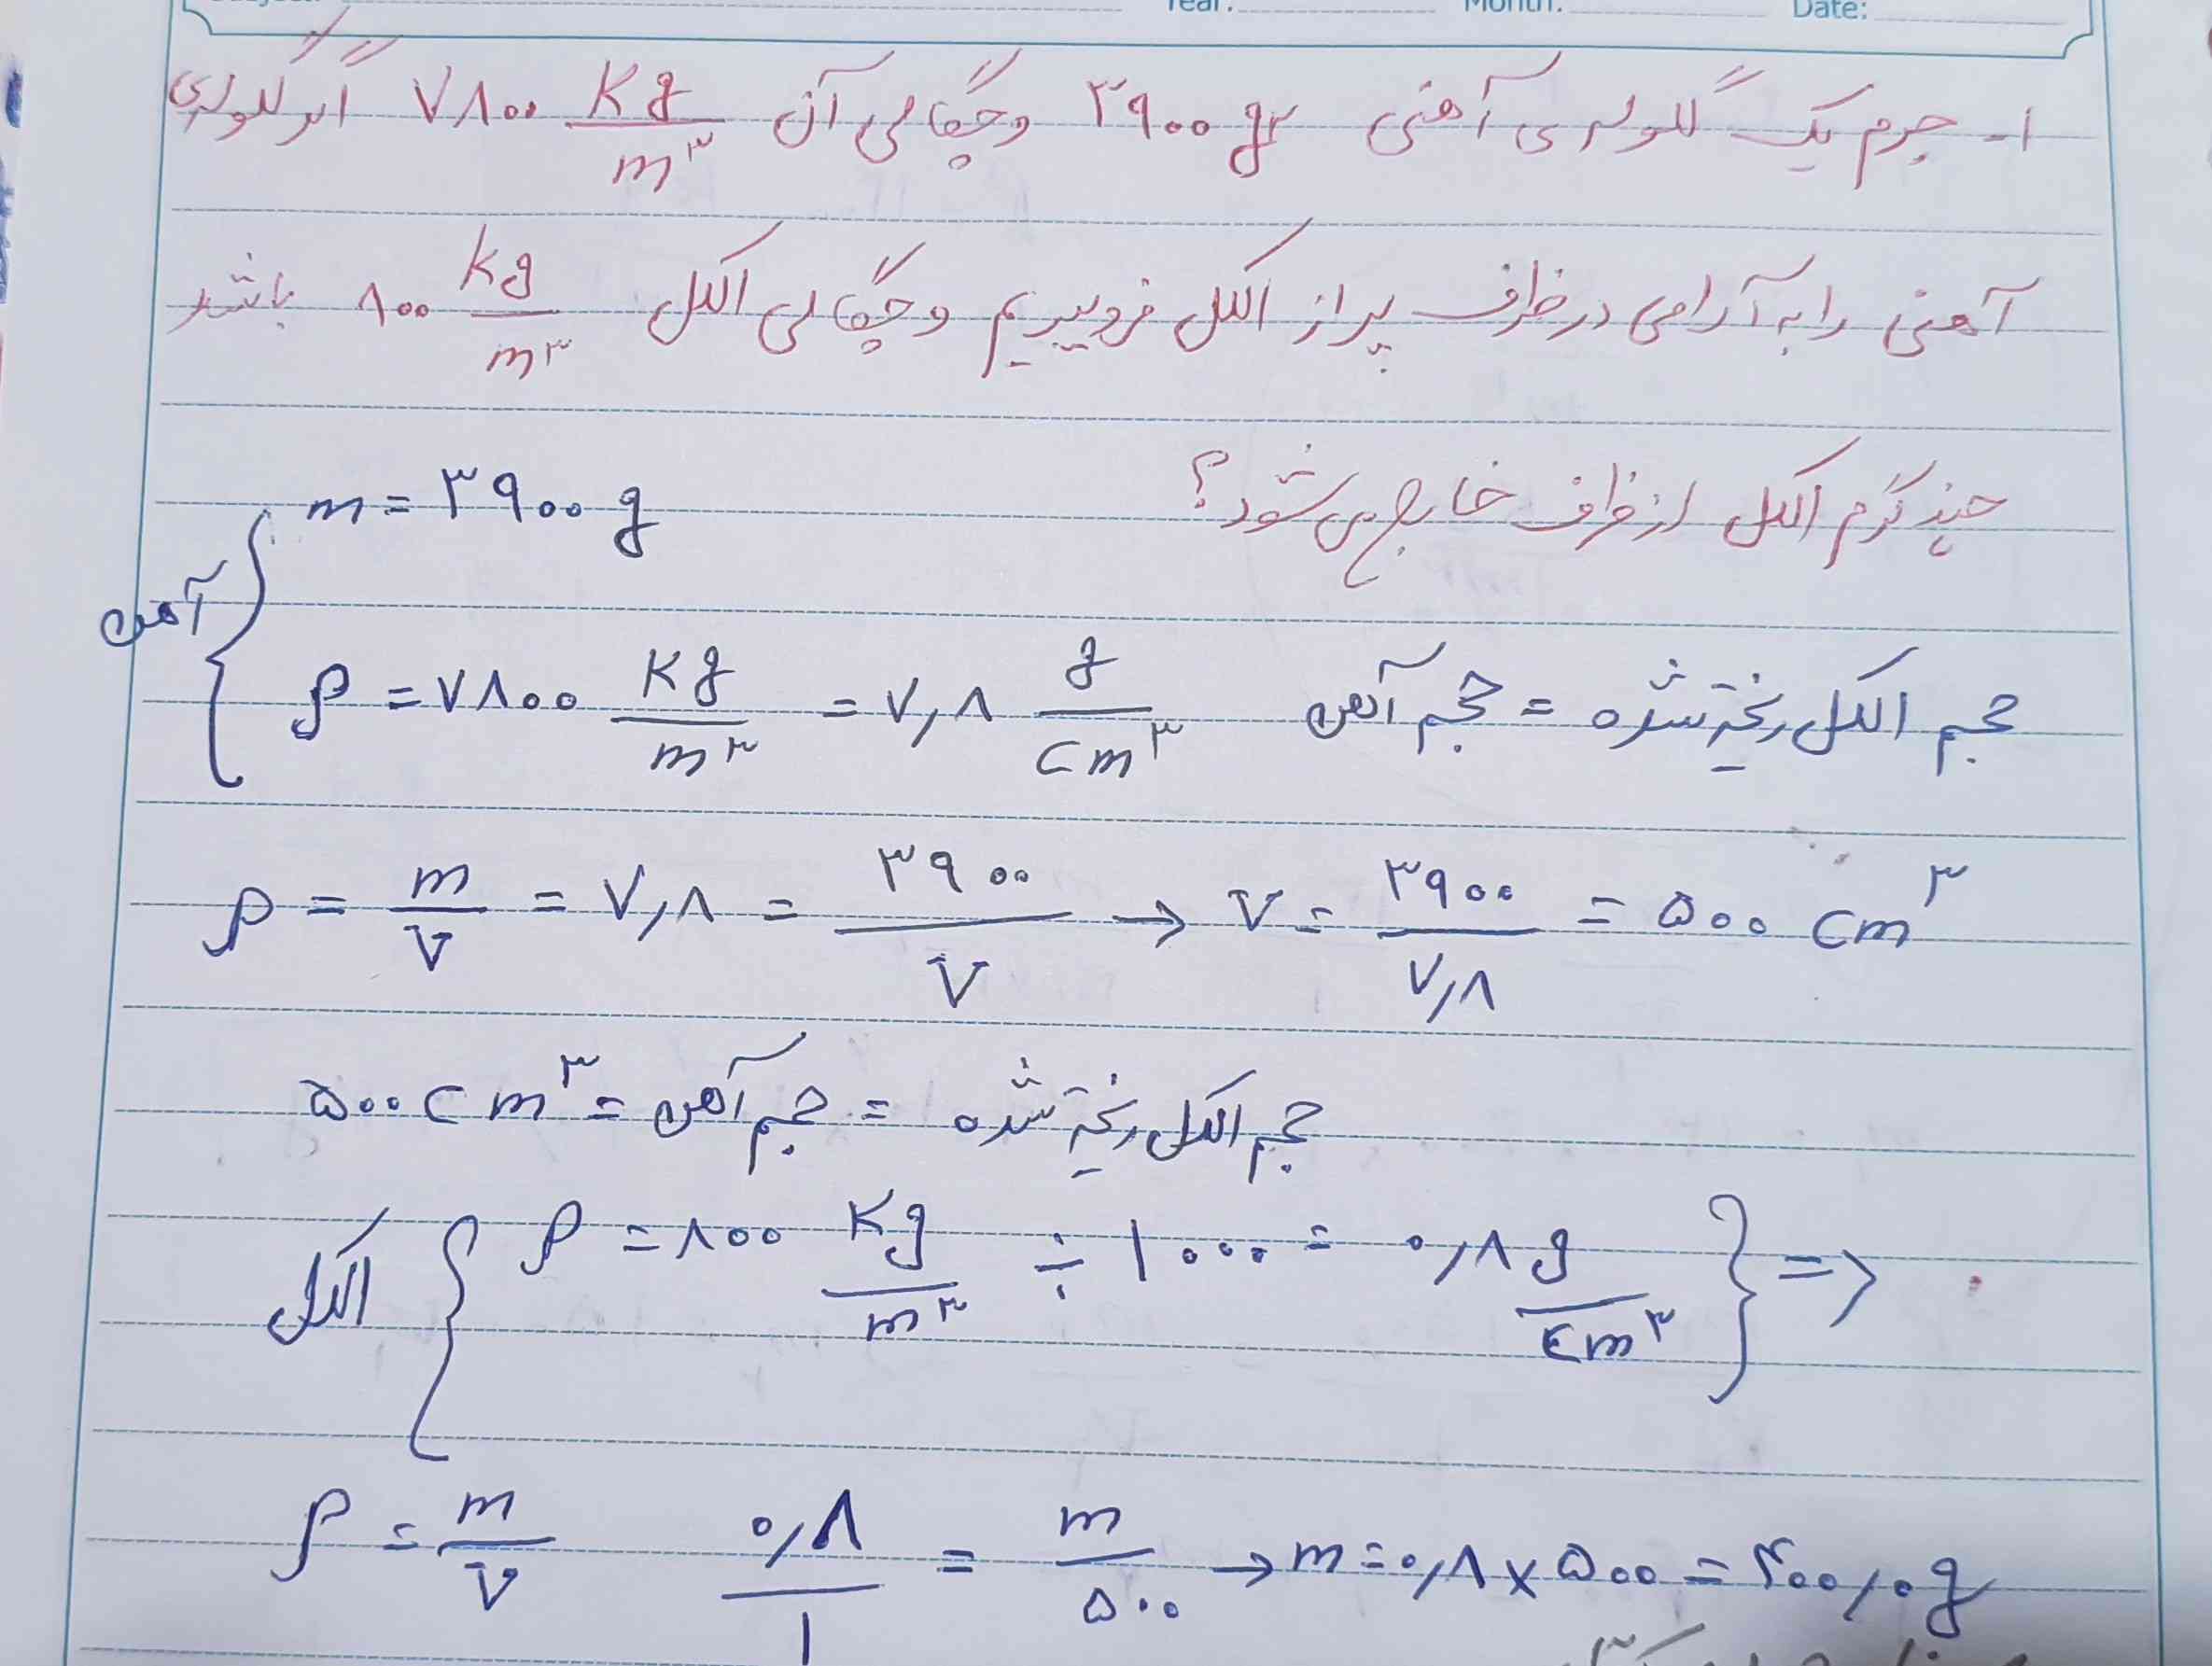 Year: Month: Date:
۱- جرم یک گلوله‌ی آهنی ۳۹۰۰ gr و چگالی آن ۷۸۰۰ kg/m³ اگر گلوله‌ی
آهنی را به آرامی در ظرف پر از الکل فرو ببریم و چگالی الکل ۸۰۰ kg/m³ باشد
چند گرم الکل از ظرف خارج می شود؟
m = ۳۹۰۰ g
آهن
ρ = ۷۸۰۰ kg/m³ = ۷,۸ g/cm³ حجم الکل ریخته شده = حجم آهن
ρ = m/V = ۷,۸ = ۳۹۰۰/V → V = ۳۹۰۰/۷,۸ = ۵۰۰ cm³
حجم الکل ریخته شده = حجم آهن = ۵۰۰ cm³
الکل { ρ = ۸۰۰ kg/m³ ÷ ۱۰۰۰ = ۰,۸ g/cm³ } =>
ρ = m/V ۰,۸/۱ = m/۵۰۰ → m = ۰,۸ × ۵۰۰ = ۴۰۰,۰ g